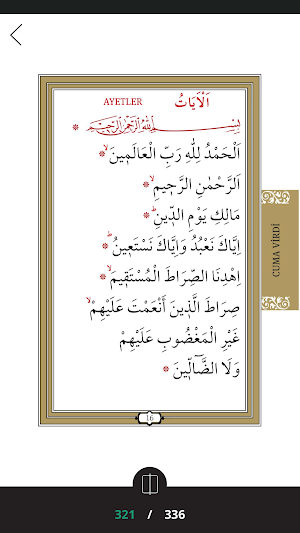 AYETLER اَلْاٰيَاتُ
بِسْمِ اللّٰهِ الرَّحْمٰنِ الرَّحِيمِ
اَلْحَمْدُ لِلّٰهِ رَبِّ الْعَالَمِينَۙ
اَلرَّحْمٰنِ الرَّحِيمِۙ
مَالِكِ يَوْمِ الدِّينِۜ
اِيَّاكَ نَعْبُدُ وَاِيَّاكَ نَسْتَعِينُۜ
اِهْدِنَا الصِّرَاطَ الْمُسْتَقِيمَۙ
صِرَاطَ الَّذِينَ اَنْعَمْتَ عَلَيْهِمْۙ
غَيْرِ الْمَغْضُوبِ عَلَيْهِمْ
وَلَا الضَّٓالِّينَ
CUMA VİRDİ
16
321 / 336